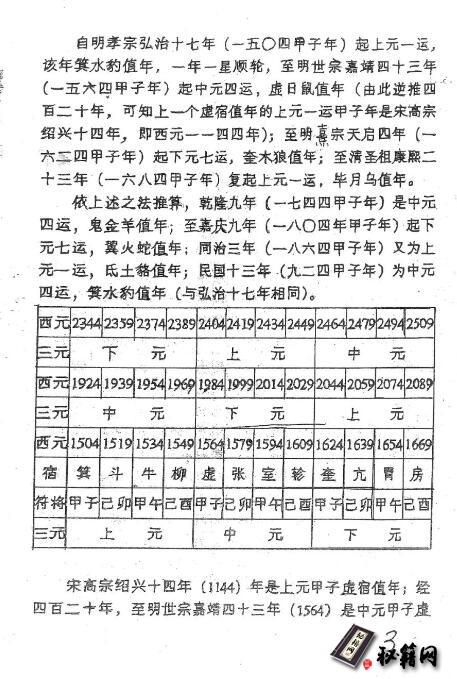 自明孝宗弘治十七年（一五〇四甲子年）起上元一运，
该年箕水豹值年，一年一星顺轮，至明世宗嘉靖四十三年
（一五六四甲子年）起中元四运，虚日鼠值年（由此逆推四
百二十年，可知上一个虚宿值年的上元一运甲子年是宋高宗
绍兴十四年，即西元一一四四年）；至明熹宗天启四年（一
六二四甲子年）起下元七运，奎木狼值年；至清圣祖康熙二
十三年（一六八四甲子年）复起上元一运，毕月乌值年。
依上述之法推算，乾隆九年（一七四四甲子年）是中元
四运，鬼金羊值年；至嘉庆九年（一八〇四年甲子年）起下
元七运，翼火蛇值年；同治三年（一八六四甲子年）又为上
元一运，氐土貉值年；民国十三年（九二四甲子年）为中元
四运，箕水豹值年（与弘治十七年相同）。
西元 2344 2359 2374 2389 2404 2419 2434 2449 2464 2479 2494 2509
三元 下元 上元 中元
西元 1924 1939 1954 1969 1984 1999 2014 2029 2044 2059 2074 2089
三元 中元 下元 上元
西元 1504 1519 1534 1549 1564 1579 1594 1609 1624 1639 1654 1669
宿 箕 斗 牛 柳 虚 张 室 轸 奎 亢 胃 房
符将 甲子 己卯 甲午 己酉 甲子 己卯 甲午 己酉 甲子 己卯 甲午 己酉
三元 上元 中元 下元
宋高宗绍兴十四年（1144）年是上元甲子虚宿值年；经
四百二十年，至明世宗嘉靖四十三年（1564）是中元甲子虚
3
秘籍网